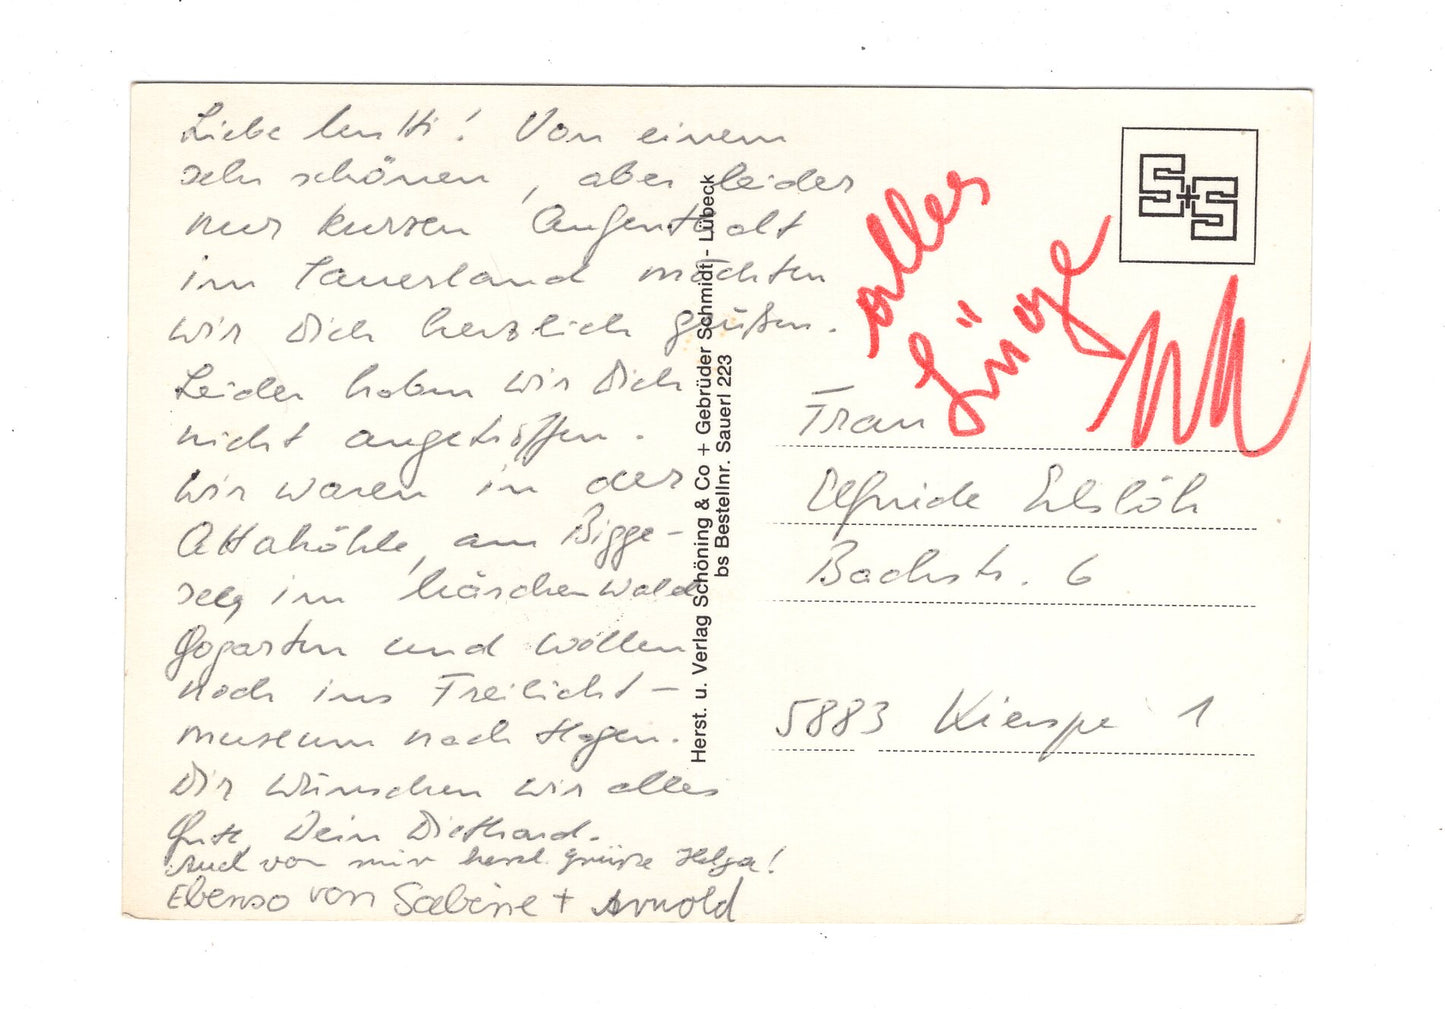 Liebe Mutti! Von einem
sehr schönen, aber leider
nur kurzen Aufenthalt
im Sauerland möchten
wir Dich herzlich grüßen.
Leider haben wir Dich
nicht angetroffen.
Wir waren in der
Attahöhle, am Bigge-
see, im Märchenwald
Gogarten und wollen
noch ins Freilicht-
museum nach Hagen.
Dir wünschen wir alles
Gute Dein Diethard.
Auch von mir herzl. Grüße Helga!
Ebenso von Sabine + Arnold
Herst. u. Verlag Schöning & Co + Gebrüder Schmidt - Lübeck
bs Bestellnr. Sauerl 223
S+S
alles
Lüge
Frau
Elfriede
Bachstr. 6
5883 Kierspe 1